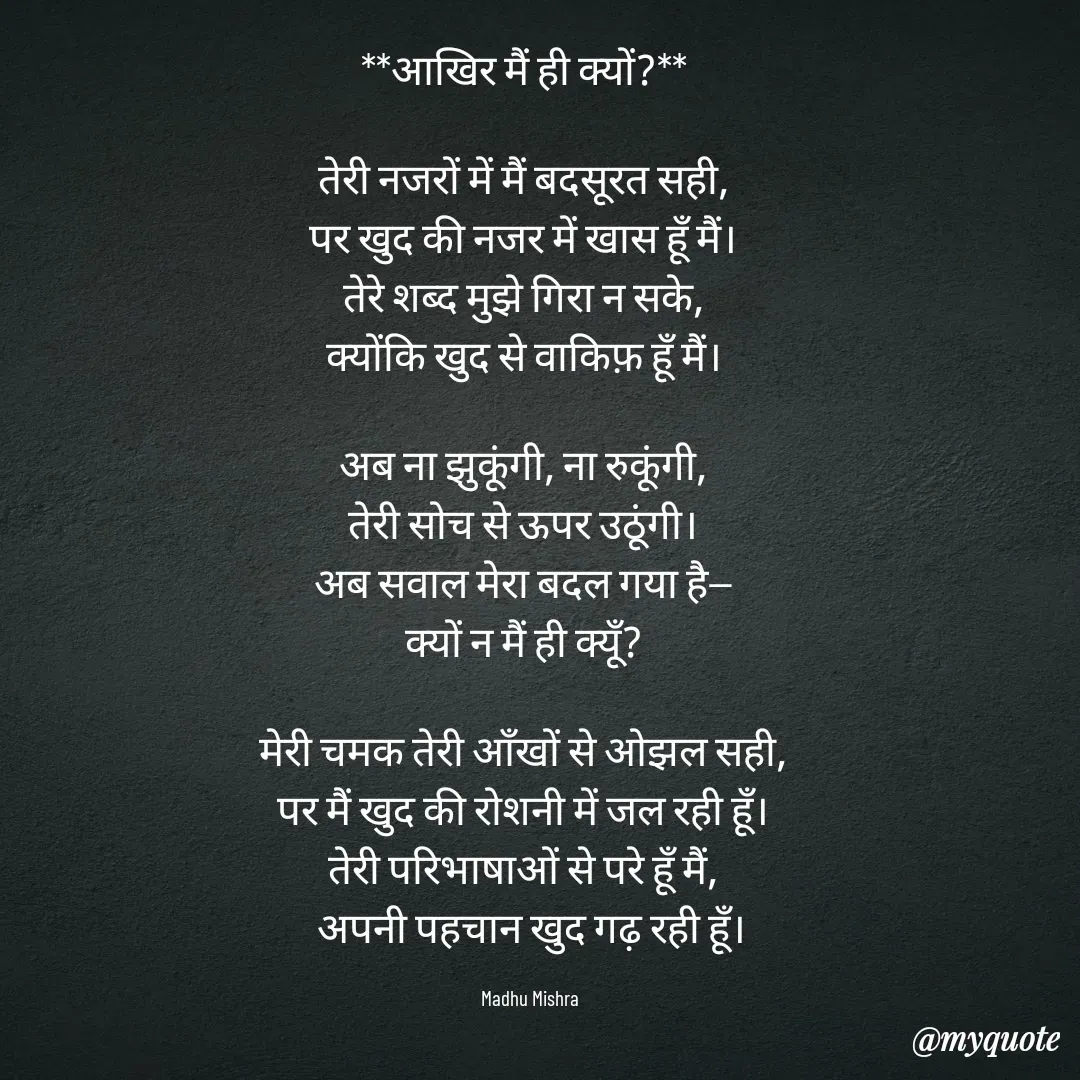 **आखिर मैं ही क्यों?**
तेरी नजरों में मैं बदसूरत सही,
पर खुद की नजर में खास हूँ मैं।
तेरे शब्द मुझे गिरा न सके,
क्योंकि खुद से वाकिफ़ हूँ मैं।
अब ना झुकूंगी, ना रुकूंगी,
तेरी सोच से ऊपर उठूंगी।
अब सवाल मेरा बदल गया है–
क्यों न मैं ही क्यूँ?
मेरी चमक तेरी आँखों से ओझल सही,
पर मैं खुद की रोशनी में जल रही हूँ।
तेरी परिभाषाओं से परे हूँ मैं,
अपनी पहचान खुद गढ़ रही हूँ।
Madhu Mishra
@myquote